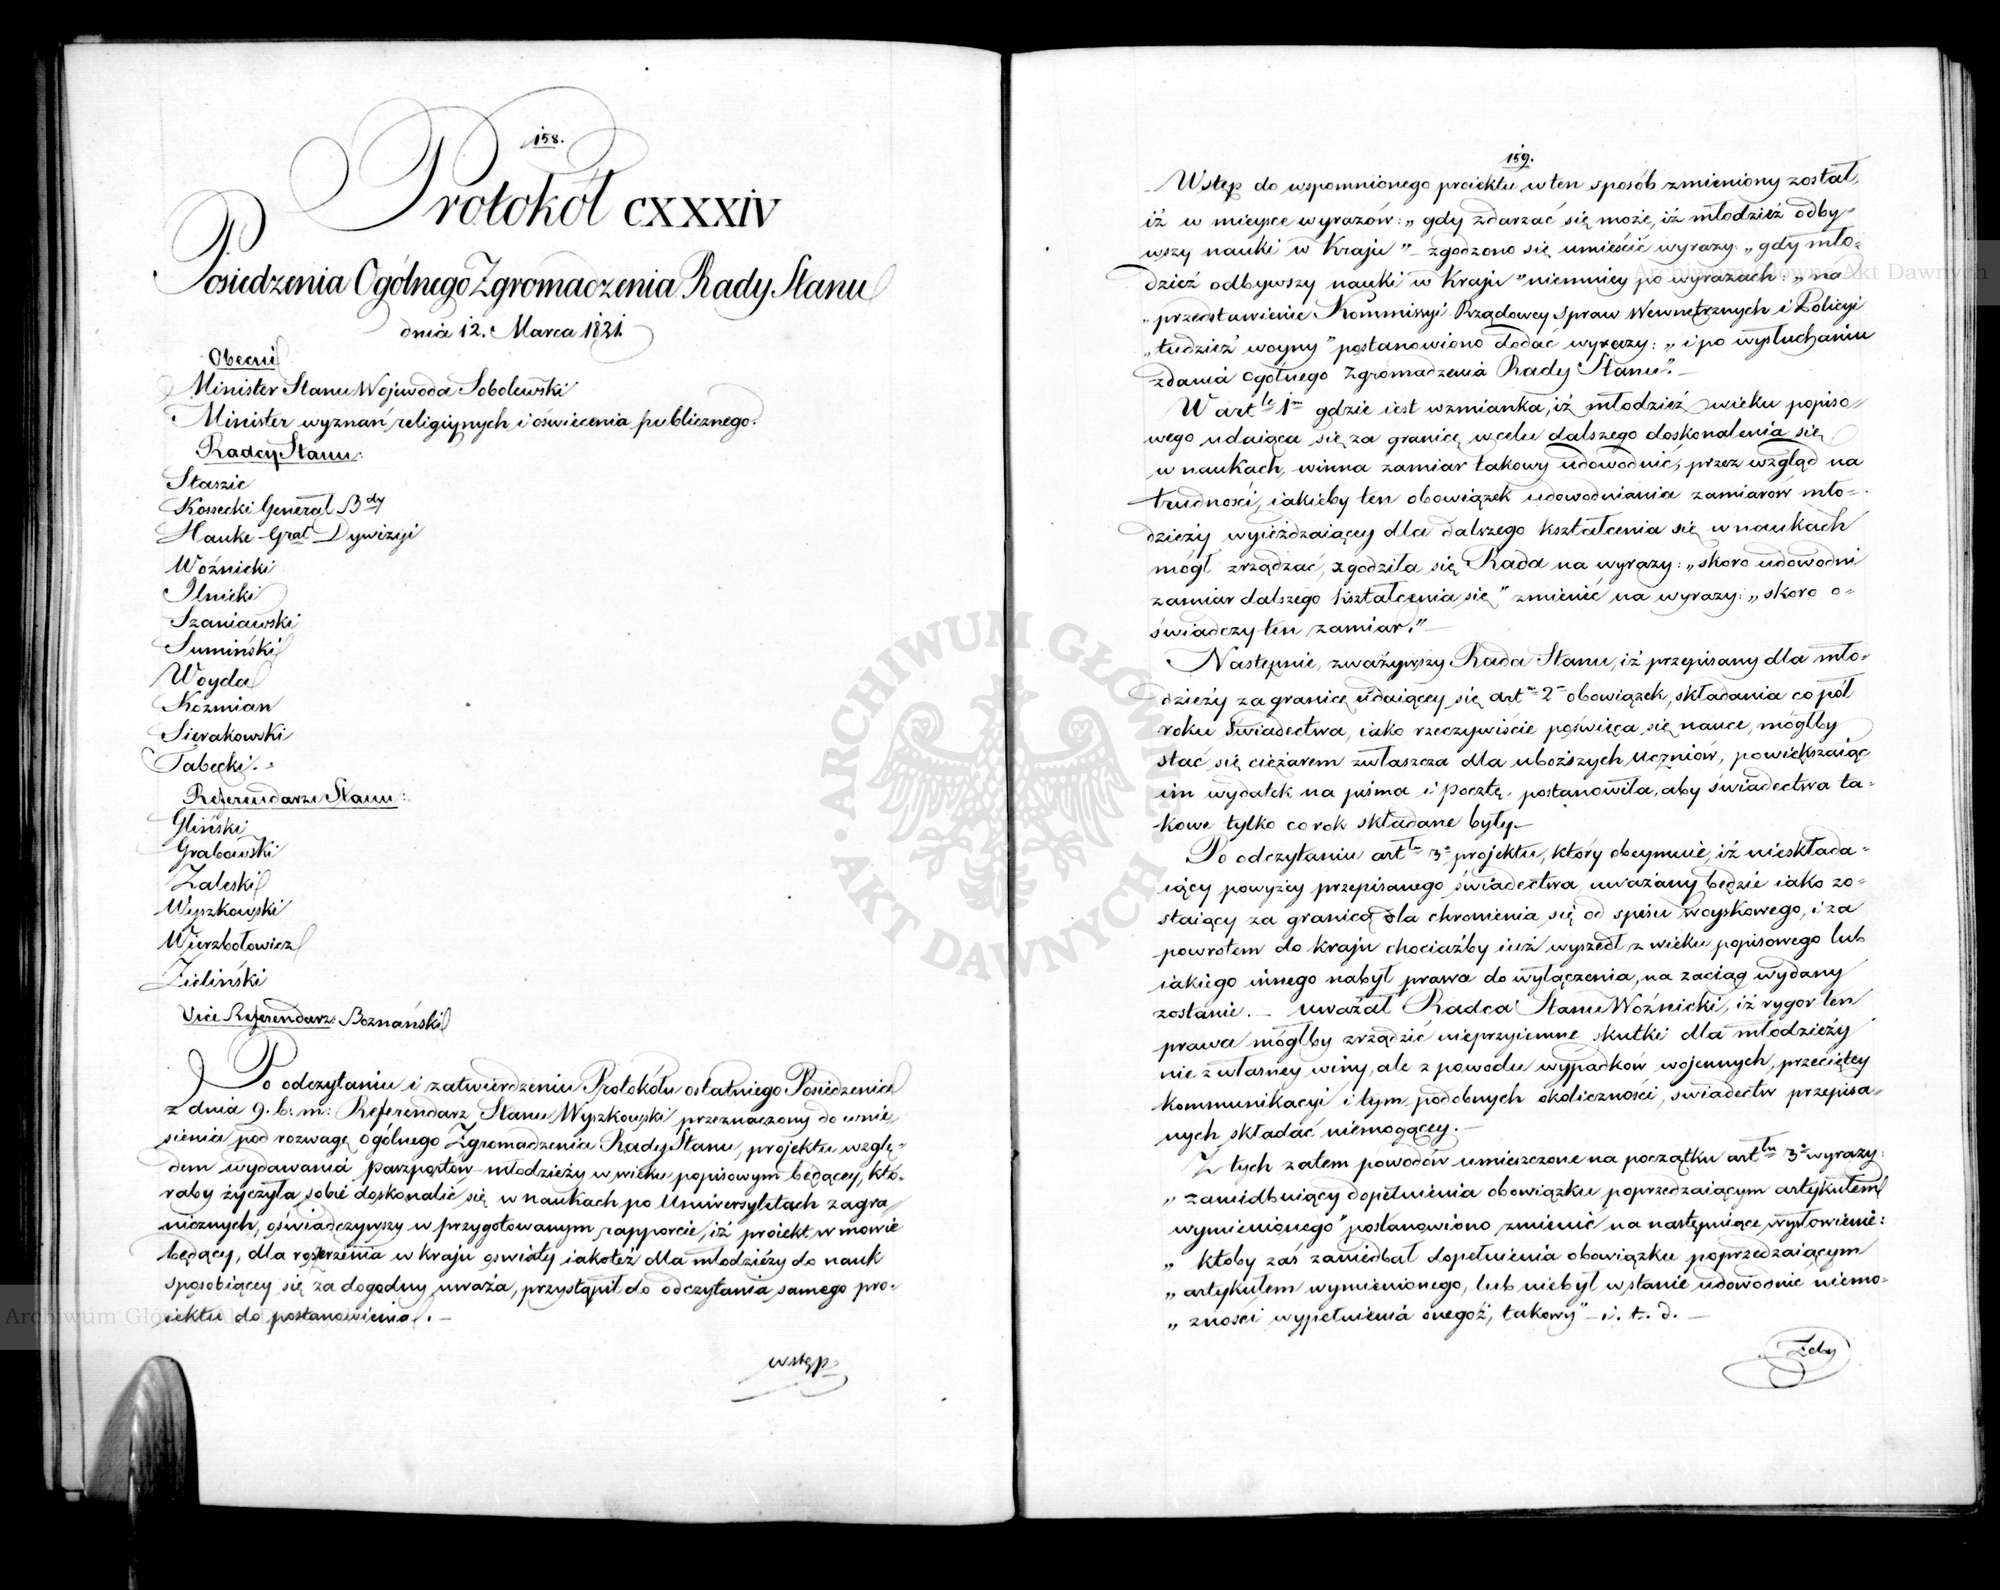 158.
Protokół CXXXIV
Posiedzenia Ogólnego Zgromadzenia Rady Stanu
dnia 12. Marca 1821.
Obecni
Minister Stanu Wojewoda Sobolewski
Minister wyznań religijnych i oświecenia publicznego.
Radcy Stanu:
Staszic
Kossecki Generał Bdy
Hauke Grał Dywizyi
Woźnicki
Ilnicki
Szaniawski
Sumiński
Woyda
Koźmian
Sierakowski
Tabęcki.
Referendarze Stanu:
Gliński
Grabowski
Zaleski
Wyszkowski
Wierzbołowicz
Zieliński
Vice Referendarz Boznański
Po odczytaniu i zatwierdzeniu Protokółu ostatniego Posiedzenia
z dnia 9. b: m: Referendarz Stanu Wyszkowski przeznaczony do wnie-
sienia pod rozwagę Ogólnego Zgromadzenia Rady Stanu, projektu wzglę-
dem wydawania paszportów młodzieży w wieku popisowym będącey, któ-
raby życzyła sobie doskonalić się w naukach po Uniwersytetach zagra
nicznych, oświadczywszy w przygotowanym rapporcie, iż proiekt w mowie
będący, dla rozszerzenia w kraju oświaty iakoteż dla młodzieży do nauk
sposobiącey się za dogodny uważa, przystąpił do odczytania samego pro-
iektu do postanowienia. —
wstęp
159.
Wstęp do wspomnionego proiektu w ten sposób zmieniony został,
iż w mieysce wyrazów: „gdy zdarzać się może, iż młodzież odby-
wszy nauki w Kraju" – zgodzono się umieścić wyrazy: „gdy mło-
dzież odbywszy nauki w Kraju" niemniey po wyrazach: „na
„przedstawienie Kommissyi Rządowey Spraw Wewnętrznych i Policyi
„tudzież woyny" postanowiono dodać wyrazy: „i po wysłuchaniu
zdania Ogólnego Zgromadzenia Rady Stanu". —
W artle 1m gdzie iest wzmianka, iż młodzież wieku popiso-
wego udaiąca się za granicę w celu dalszego doskonalenia się
w naukach, winna zamiar takowy udowodnić, przez wzgląd na
trudności, iakieby ten obowiązek udowodniania zamiarów mło-
dzieży wyieżdzaiącey dla dalszego kształcenia się w naukach
mógł zrządzać, zgodziła się Rada na wyrazy: „skoro udowodni
zamiar dalszego kształcenia się" zmienić na wyrazy: „skoro o-
świadczy ten zamiar." —
Następnie, zważywszy Rada Stanu, iż przepisany dla mło-
dzieży za granicę udaiącey się art 2 obowiązek, składania co pół
roku świadectwa, iako rzeczywiście poświęca się nauce, mógłby
stać się ciężarem zwłaszcza dla uboższych Uczniów, powiększaiąc
im wydatek na pisma i pocztę, postanowiła, aby świadectwa ta-
kowe tylko co rok składane były. —
Po odczytaniu artlu 3o projektu, który obeymuie, iż nieskłada-
iący powyżey przepisanego świadectwa, uważany będzie iako zo-
staiący za granicą dla chronienia się od spisu woyskowego, i za
powrotem do kraju chociażby iuż wyszedł z wieku popisowego lub
iakiego innego nabył prawa do wyłączenia, na zaciąg wydany
zostanie. — Uważał Radca Stanu Woźnicki, iż rygor ten
prawa mógłby zrządzić nieprzyiemne skutki dla młodzieży
nie z własney winy, ale z powodu wypadków wojennych, przeciętey
kommunikacyi i tym podobnych okoliczności, świadectw przepisa-
nych składać niemogącey. —
Z tych zatem powodów umieszczone na początku artlu 3o wyrazy:
„zaniedbuiący dopełnienia obowiązku poprzedzaiącym artykułem
wymienionego" postanowiono zmienić na następuiące wysłowienie:
„ktoby zaś zaniedbał dopełnienia obowiązku poprzedzaiącym
„artykułem wymienionego, lub niebył w stanie udowodnić niemo-
„żności wypełnienia onegoż, takowy" – i. t. d. —
Żeby
ARCHIWUM GŁÓWNE AKT DAWNYCH
Archiwum Główne Akt Dawnych